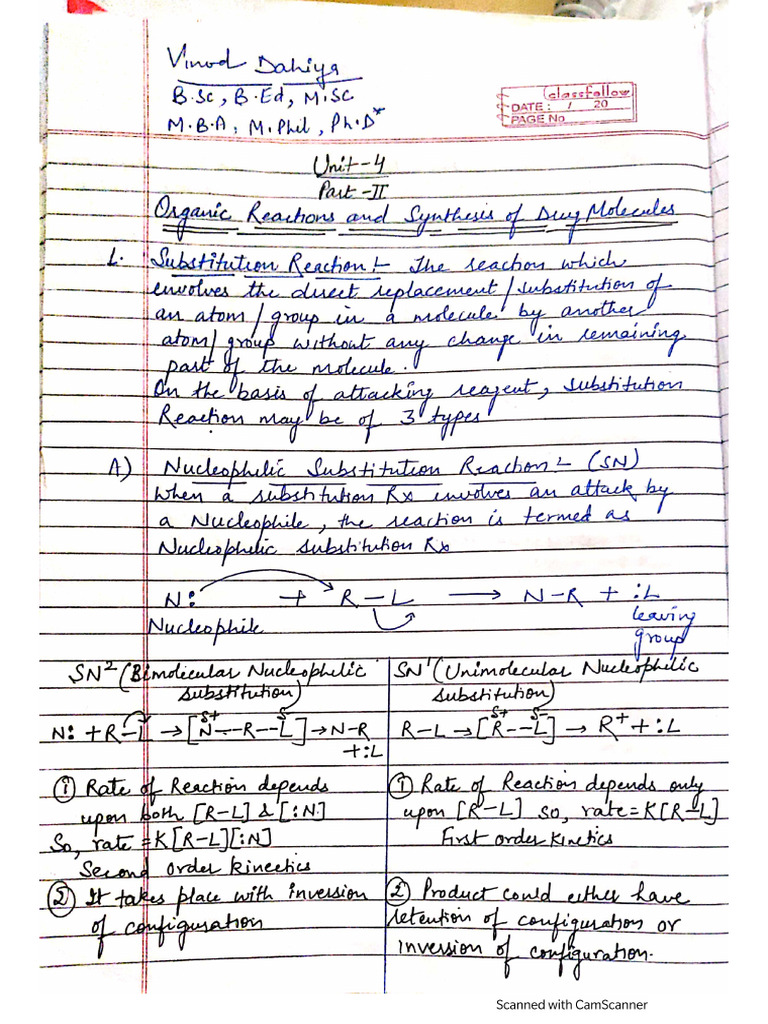 Vinod Dahiya
B.Sc, B.Ed, M.SC
M.B.A, M.Phil, Ph.D*
classfellow
DATE: / 20
PAGE No
Unit-4
Part-II
Organic Reactions and Synthesis of Drug Molecules
1. Substitution Reaction:- The reaction which
involves the direct replacement/substitution of
an atom/group in a molecule by another
atom/group without any change in remaining
part of the molecule.
On the basis of attacking reagent, substitution
Reaction may be of 3 types
A) Nucleophilic Substitution Reaction:- (SN)
When a substitution Rx involves an attack by
a Nucleophile, the reaction is termed as
Nucleophilic substitution Rx
N: + R-L → N-R + :L
Nucleophile
leaving
group
SN² (Bimolicular Nucleophilic
substitution)
N: + R-L → [N---R--L] → N-R
δ+ δ-
+:L
① Rate of Reaction depends
upon both [R-L] & [:N]
So, rate = K[R-L][:N]
Second order kineetics
② It takes place with inversion
of configuration
SN¹ (Unimolecular Nucleophilic
substitution)
R-L → [R--L] → R⁺ + :L
δ+ δ-
① Rate of Reaction depends only
upon [R-L] so, rate = K[R-L]
First order kinetics
② Product could either have
retention of configuration or
inversion of configuration.
Scanned with CamScanner